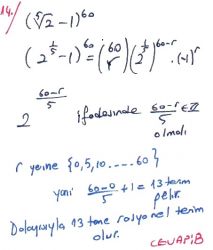 14.) (⁵√2 - 1)⁶⁰
(2^(1/5) - 1)⁶⁰ = (60 r) (2^(1/5))^(60-r) . (-1)^r
2^((60-r)/5) ifadesinde (60-r)/5 ∈ Z olmalı
r yerine {0, 5, 10 ..... 60}
yani (60-0)/5 + 1 = 13 terim gelir.
Dolayısıyla 13 tane rasyonel terim olur.
CEVAP: B